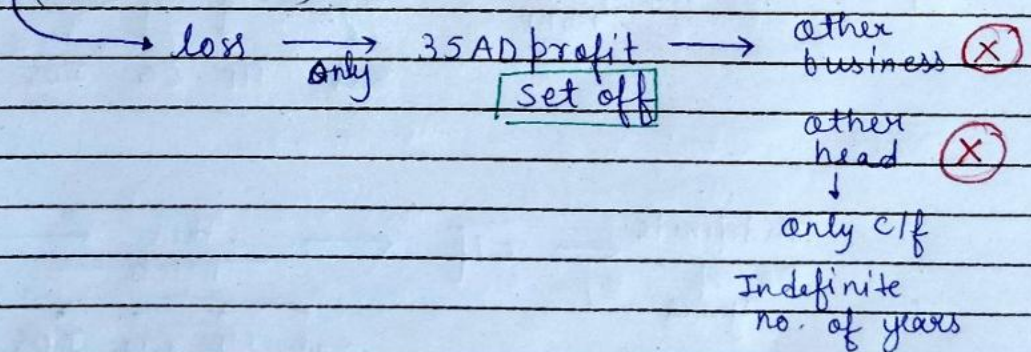 loss → only 35AD profit → other business X
set off
other head X
↓
only c/f
Indefinite
no. of years